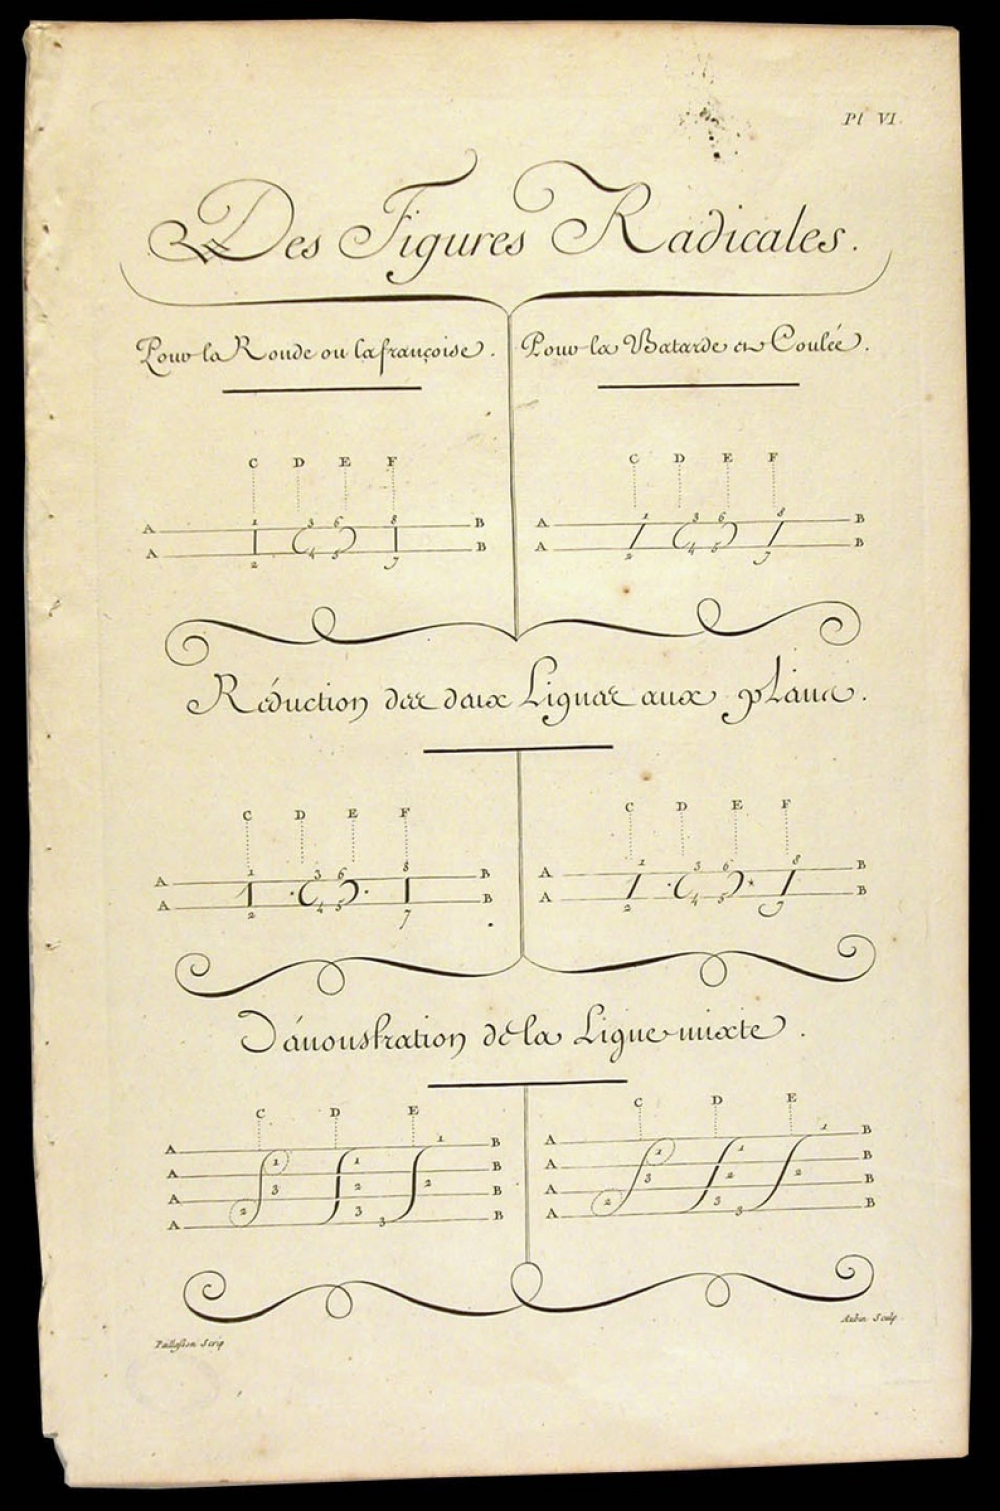 Pl VI.
Des Figures Radicales.
Pour la Ronde ou la françoise.
Pour la Batarde et Coulée.
C D E F
A 1 3 6 8 B
A 2 4 5 7 B
C D E F
A 1 3 6 8 B
A 2 4 5 7 B
Réduction des deux Lignes aux pleins.
C D E F
A 1 3 6 8 B
A 2 4 5 7 B
C D E F
A 1 3 6 8 B
A 2 4 5 7 B
Démonstration de la Ligne mixte.
C D E
A 1 B
A 1 1 B
A 3 2 2 B
A 2 3 3 B
C D E
A 1 B
A 1 1 B
A 3 2 2 B
A 2 3 3 B
Paillasson Scrip
Aubin Sculp